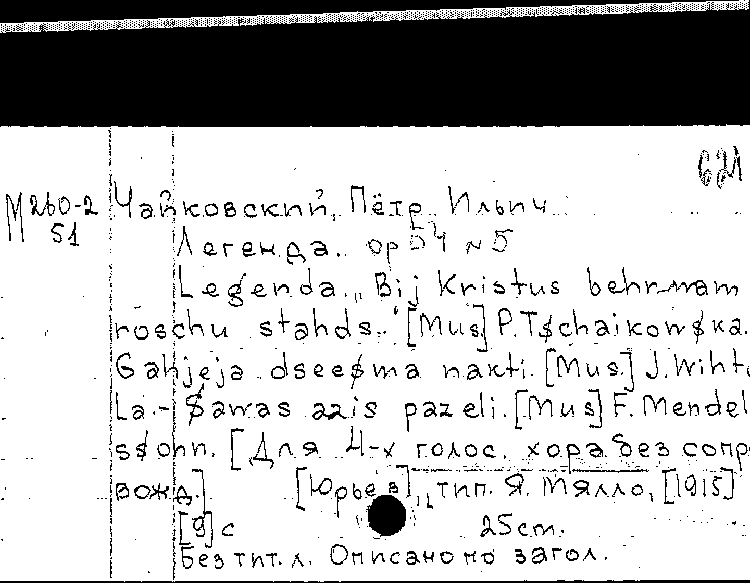 621
М260-2 Чайковский, Пётр Ильич
51
Легенда. ор 54 № 5
Legenda. „Bij Kristus behrnam
roschu stahds.." [Mus] P. Tschaikowska.
Gahjeja dseesma nakti. [Mus.] J. Wihto
La.- Sawas azis pazeli. [Mus] F. Mendel
ssohn. [Для 4-х голос. хора без сопро
вожд.] [Юрьев], тип. Я. Мялло, [1915]
[9] с 25 cm.
Без тит. л. Описано по загол.